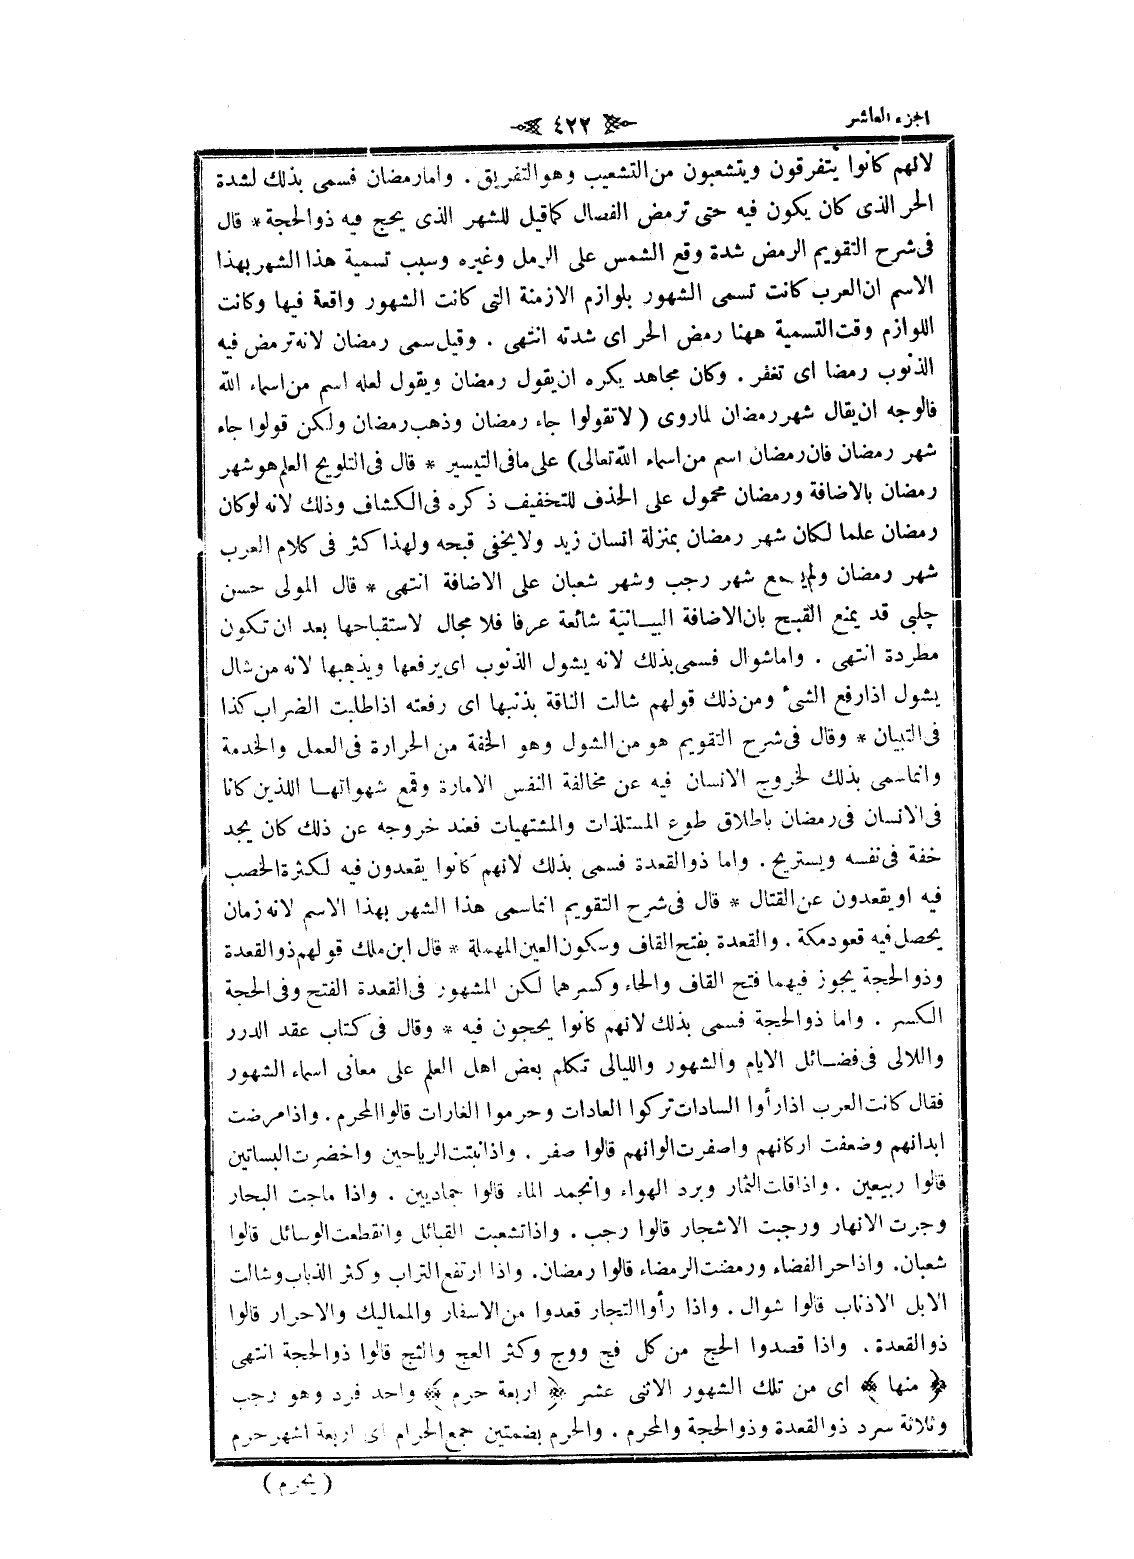 الجزء العاشر
٤٢٢
لانهم كانوا يتفرقون ويتشعبون من التشعيب وهو التفريق . واما رمضان فسمى بذلك لشدة
الحر الذى كان يكون فيه حتى ترمض الفصال كما قيل للشهر الذى يحج فيه ذو الحجة * قال
فى شرح التقويم الرمض شدة وقع الشمس على الرمل وغيره وسبب تسمية هذا الشهر بهذا
الاسم ان العرب كانت تسمى الشهور بلوازم الازمنة التى كانت الشهور واقعة فيها وكانت
اللوازم وقت التسمية ههنا رمض الحر اى شدته انتهى . وقيل سمى رمضان لانه ترمض فيه
الذنوب رمضا اى تغفر . وكان مجاهد يكره ان يقول رمضان ويقول لعله اسم من اسماء الله
فالوجه ان يقال شهر رمضان لماروى ( لا تقولوا جاء رمضان وذهب رمضان ولكن قولوا جاء
شهر رمضان فان رمضان اسم من اسماء الله تعالى ) على مافى التيسير * قال فى التلويح العلم هو شهر
رمضان بالاضافة ورمضان محمول على الحذف للتخفيف ذكره فى الكشاف وذلك لانه لو كان
رمضان علما لكان شهر رمضان بمنزلة انسان زيد ولا يخفى قبحه ولهذا كثر فى كلام العرب
شهر رمضان ولم يسمع شهر رجب وشهر شعبان على الاضافة انتهى * قال المولى حسن
چلبى قد يمنع القبح بان الاضافة البيانية شائعة عرفا فلا مجال لاستقباحها بعد ان تكون
مطردة انتهى . واما شوال فسمى بذلك لانه يشول الذنوب اى يرفعها ويذهبها لانه من شال
يشول اذا رفع الشئ ومن ذلك قولهم شالت الناقة بذنبها اى رفعته اذا طلبت الضراب كذا
فى التبيان * وقال فى شرح التقويم هو من الشول وهو الخفة من الحرارة فى العمل والخدمة
وانما سمى بذلك لخروج الانسان فيه عن مخالفة النفس الامارة وقمع شهواتها اللذين كانا
فى الانسان فى رمضان باطلاق طوع المستلذات والمشتهيات فعند خروجه عن ذلك كان يجد
خفة فى نفسه ويستريح . واما ذو القعدة فسمى بذلك لانهم كانوا يقعدون فيه لكثرة الخصب
فيه او يقعدون عن القتال * قال فى شرح التقويم انما سمى هذا الشهر بهذا الاسم لانه زمان
يحصل فيه قعود مكة . والقعدة بفتح القاف وسكون العين المهملة * قال ابن ملك قولهم ذو القعدة
وذو الحجة يجوز فيهما فتح القاف والحاء وكسرهما لكن المشهور فى القعدة الفتح وفى الحجة
الكسر . واما ذو الحجة فسمى بذلك لانهم كانوا يحجون فيه * وقال فى كتاب عقد الدرر
واللالى فى فضائل الايام والشهور والليالى تكلم بعض اهل العلم على معانى اسماء الشهور
فقال كانت العرب اذا رأوا السادات تركوا العادات وحرموا الغارات قالوا المحرم . واذا مرضت
ابدانهم وضعفت اركانهم واصفرت الوانهم قالوا صفر . واذا نبتت الرياحين واخضرت البساتين
قالوا ربيعين . واذا قلت الثمار وبرد الهواء وانجمد الماء قالوا جماديين . واذا ماجت البحار
وجرت الانهار ورجبت الاشجار قالوا رجب . واذا تشعبت القبائل وانقطعت الوسائل قالوا
شعبان . واذا حر الفضاء ورمضت الرمضاء قالوا رمضان . واذا ارتفع التراب وكثر الذباب وشالت
الابل الاذناب قالوا شوال . واذا رأوا التجار قعدوا من الاسفار والمماليك والاحرار قالوا
ذو القعدة . واذا قصدوا الحج من كل فج ووج وكثر العج والثج قالوا ذو الحجة انتهى
﴿ منها ﴾ اى من تلك الشهور الاثنى عشر ﴿ اربعة حرم ﴾ واحد فرد وهو رجب
وثلاثة سرد ذو القعدة وذو الحجة والمحرم . والحرم بضمتين جمع الحرام اى اربعة اشهر حرم
( يحرم )